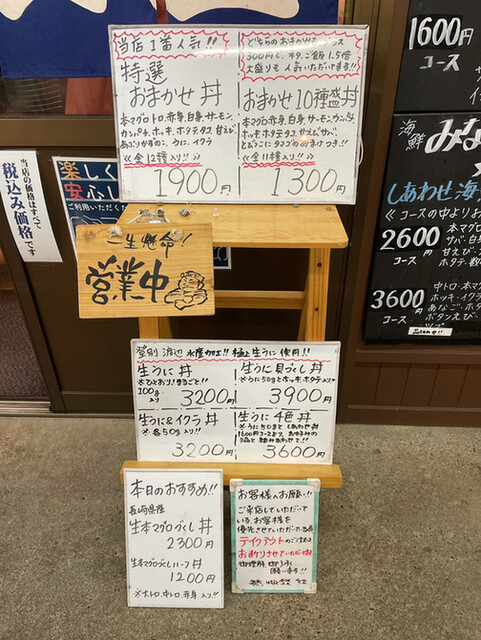 当店1番人気!!
特選
おまかせ丼
本マグロトロ,赤身,白身,サーモン
カンパチ,ホッキ,ホタテ,タコ,甘えび
<<全12種入り!!>>
1900円
300円で、ネタ、ご飯1.5倍
大盛りも人気いただいてます!!
おまかせ10種盛丼
本マグロ,赤身,白身,サーモン,カンパチ
ホッキ,ホタテ,タコ,甘えび,サバ
<<全11種入り!!>>
1300円
当店の価格はすべて
税込み価格です
楽しく
安心し
ご利用いただくた
一生懸命!
営業中
1600円
コース
海鮮
みな
しあわせ海
<<コースの中よりお
2600円
コース
本マグロ
サバ,白身
甘えび,
ホタテ,数
3600円
コース
中トロ,本マ
ホッキ,イクラ
あなご,ホタ
ボタンえび,
登別 渡辺水産加工!! 極上生うに使用!!
生うに丼
※ひとおり!まるごと!!
100g
入り
3200円
生うに貝づくし丼
※うに50gとホッキ,ホタテ入り!!
3900円
生うに&イクラ丼
※各50g入り!!
3200円
生うに4色丼
※うに50gと しあわせ丼
3600円
本日のおすすめ!!
長崎県産
生本マグロづくし丼
2300円
生本マグロづくしハーフ丼
1200円
※大トロ,中トロ,赤身入り!!
お客様へお願い!!
ご来店していただいて
いる、お客様を
優先させていただいて
テイクアウトのご注文は
お断りさせていただいて